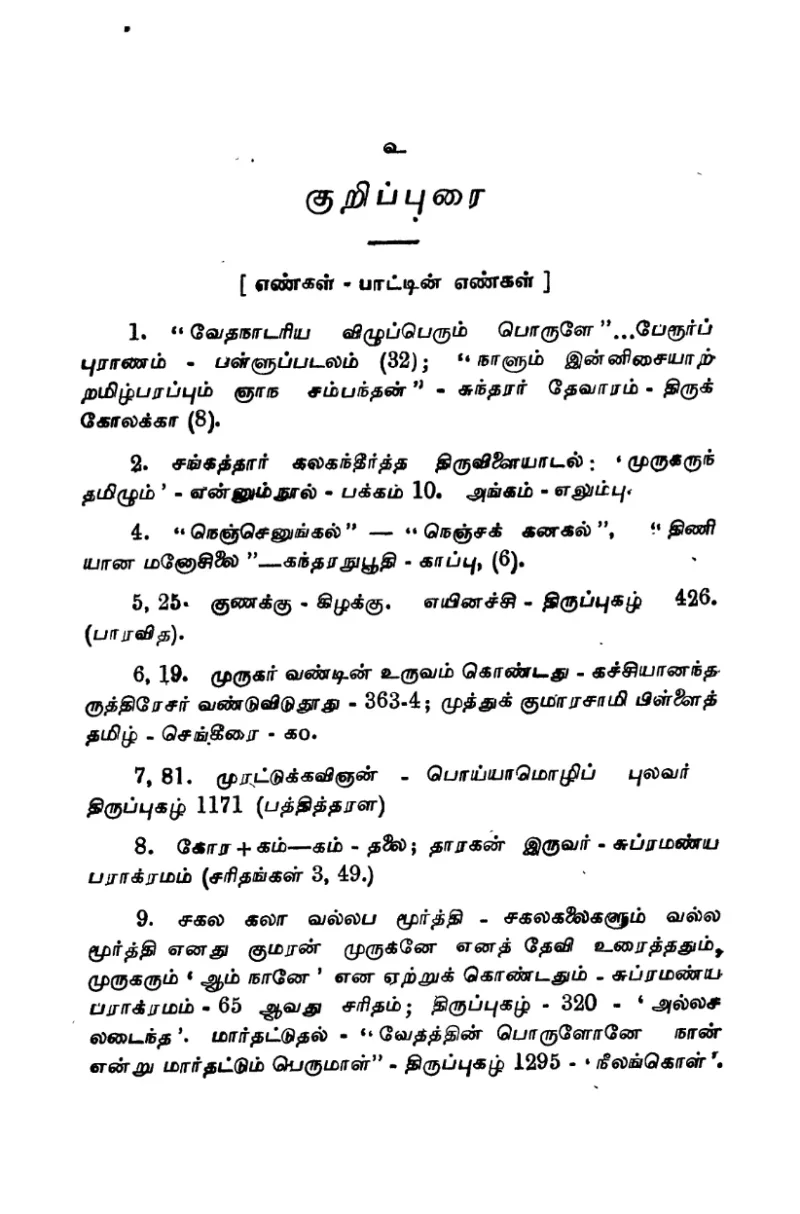 உ
குறிப்புரை
[ எண்கள் - பாட்டின் எண்கள் ]
1. “ வேதநாடரிய விழுப்பெரும் பொருளே ”...பேரூர்ப்
புராணம் - பள்ளுப்படலம் (32) ; “ நாளும் இன்னிசையாற்
றமிழ்பரப்பும் ஞாந சம்பந்தன் ” - சுந்தரர் தேவாரம் - திருக்
கோலக்கா (8).
2. சங்கத்தார் கலகந்தீர்த்த திருவிளையாடல் : ‘ முருகருந்
தமிழும் ’ - என்னும்நூல் - பக்கம் 10. அங்கம் - எலும்பு.
4. “ நெஞ்செனுங்கல் ” — “ நெஞ்சக் கனகல் ”, “ திணி
யான மனோசிலை ”—கந்தரநுபூதி - காப்பு, (6).
5, 25. குணக்கு - கிழக்கு. எயினச்சி - திருப்புகழ் 426.
(பாரவித).
6, 19. முருகர் வண்டின் உருவம் கொண்டது - கச்சியானந்த
ருத்திரேசர் வண்டுவிடுதூது - 363-4 ; முத்துக் குமாரசாமி பிள்ளைத்
தமிழ் - செங்கீரை - ௧௦.
7, 81. முரட்டுக்கவிஞன் - பொய்யாமொழிப் புலவர்
திருப்புகழ் 1171 (பத்தித்தரள)
8. கோர + கம்—கம் - தலை ; தாரகன் இருவர் - சுப்ரமண்ய
பராக்ரமம் (சரிதங்கள் 3, 49.)
9. சகல கலா வல்லப மூர்த்தி - சகலகலைகளும் வல்ல
மூர்த்தி எனது குமரன் முருக்னே எனத் தேவி உரைத்ததும்,
முருகரும் ‘ ஆம் நானே ’ என ஏற்றுக் கொண்டதும் - சுப்ரமண்ய
பராக்ரமம் - 65 ஆவது சரிதம் ; திருப்புகழ் - 320 - ‘ அல்லச
லடைந்த ’. மார்தட்டுதல் - “ வேதத்தின் பொருளோனே நான்
என்று மார்தட்டும் பெருமாள்” - திருப்புகழ் 1295 - ‘ நீலங்கொள் ’.